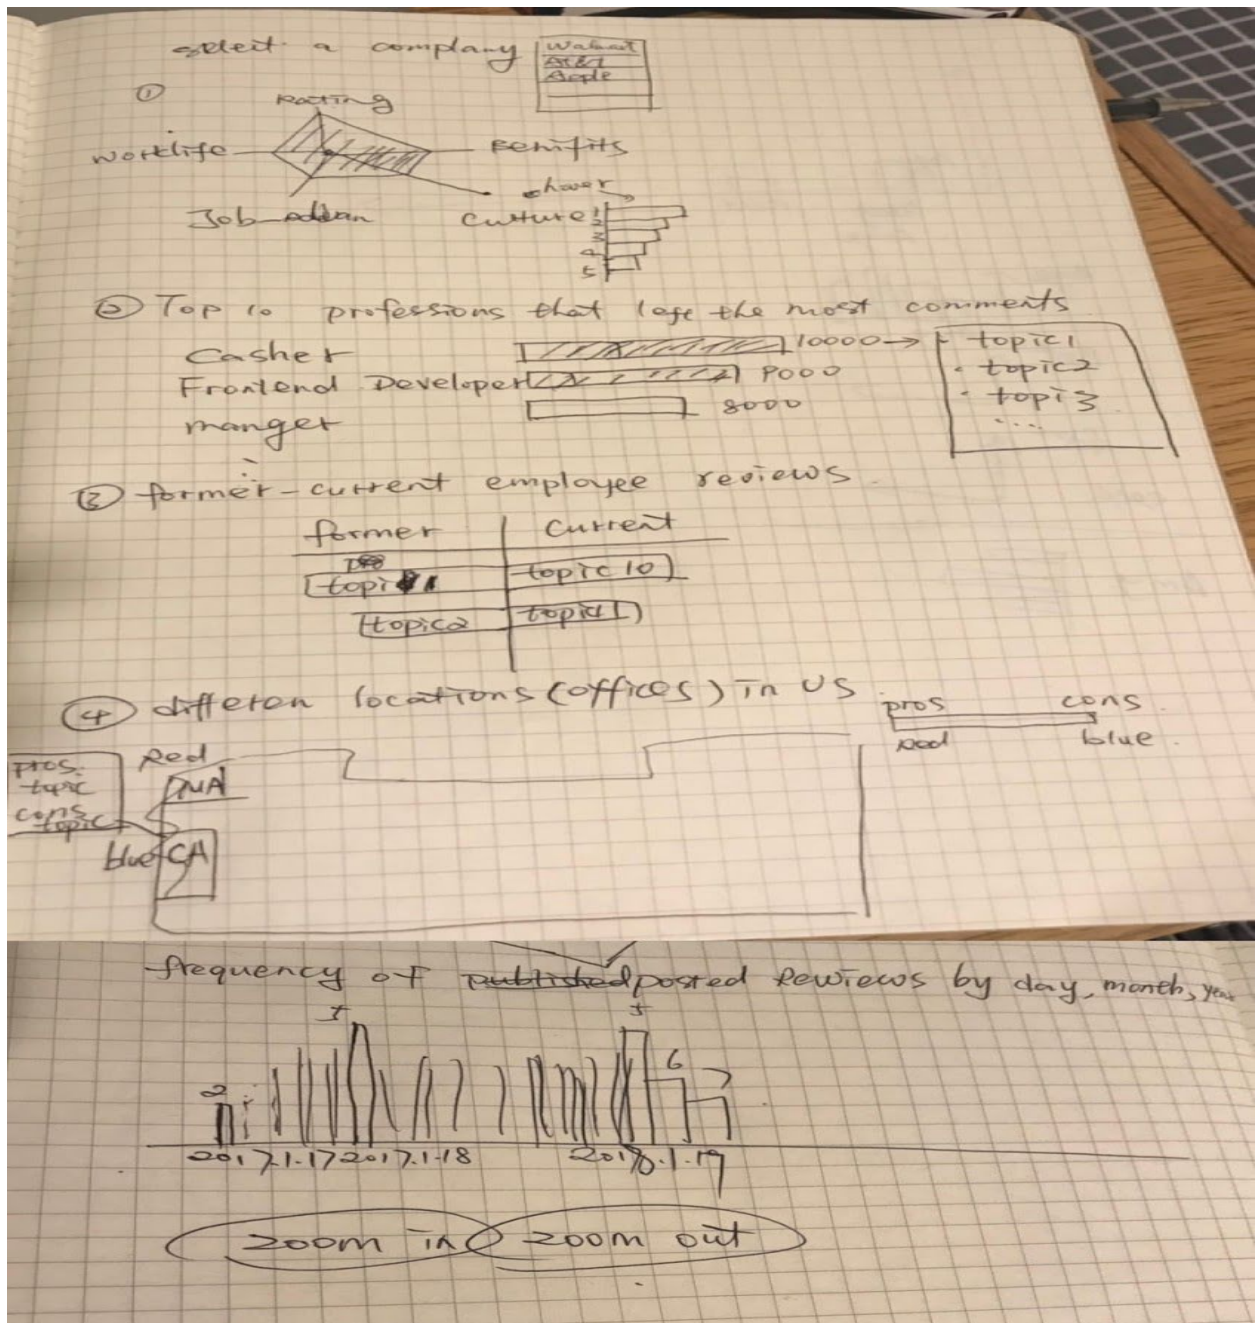 select a complany
Walmart
AT&T
Apple
①
Rating
Worklife
Benifits
hover
Job
Culture
1
2
3
4
5
② Top 10 professions that left the most comments
Casher 10000 → topic1
Frontend Developer 9000 · topic2
manger 8000 · topi3
....
③ former-current employee reviews
former current
topic 1 topic 10
topic2 topic 11
④ differen locations (offices) in US
pros cons
Red blue
Red
pros.
topic
cons
topic
blue CA
frequency of published posted Rewiews by day, month, year
2
6
7
2017.1.17 2017.1.18 2018.1.19
zoom in zoom out